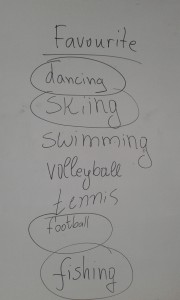 Favourite
dancing
skiing
swimming
volleyball
tennis
football
fishing